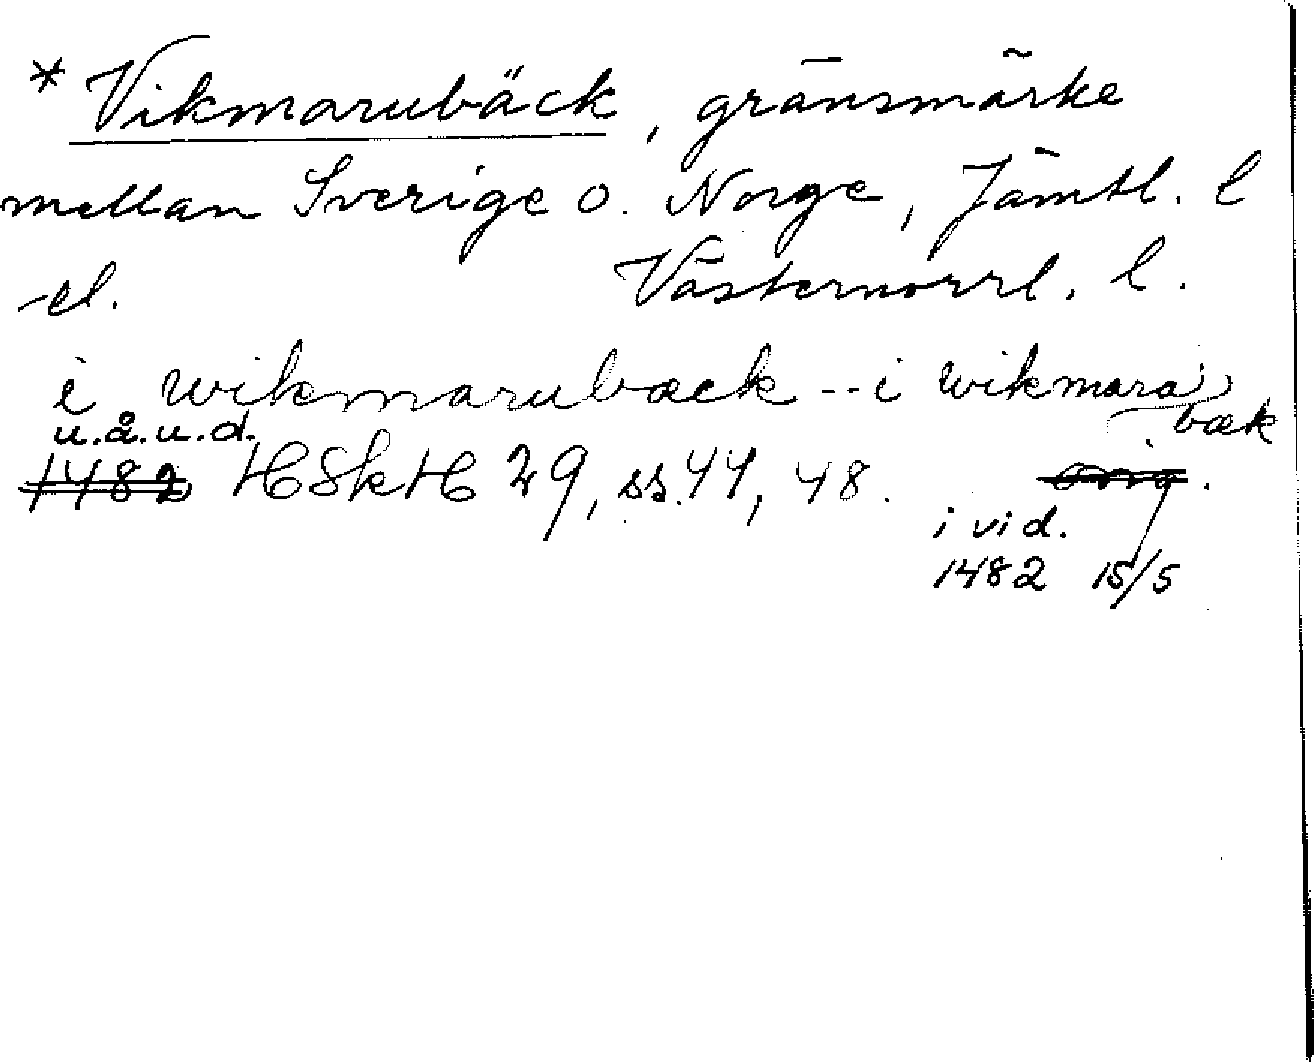 * Vikmarubäck, gränsmärke
mellan Sverige o. Norge, Jämtl. l
el. Västernorrl. l.
i wikmarubæck -- i wikmara
bæk
u.å.u.d.
1482 HSkH 29, ss. 44, 48. orig.
i vid.
1482 15/5